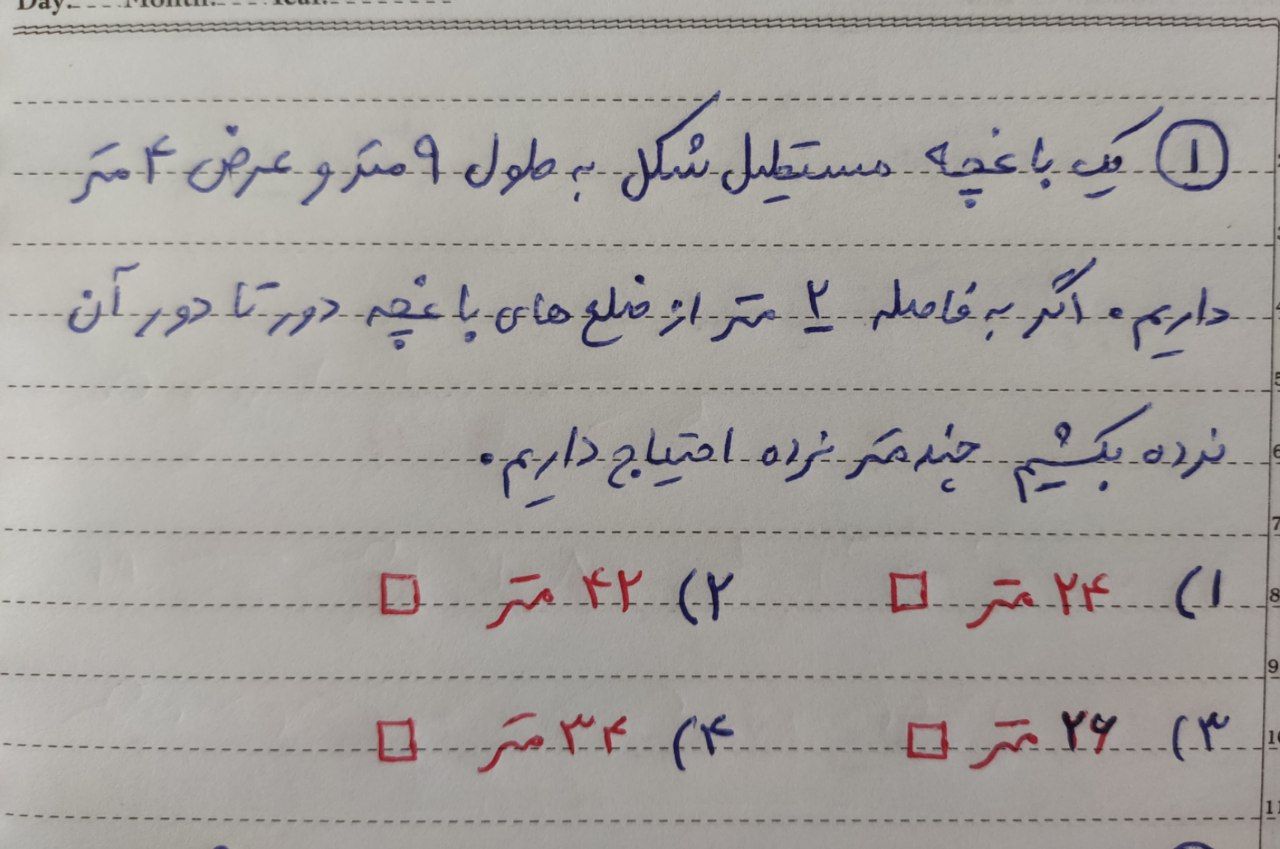 Day: Month: Year:
۱ یک باغچه مستطیل شکل به طول ۹ متر و عرض ۴ متر
داریم. اگر به فاصله ۲ متر از ضلع های باغچه دور تا دور آن
نرده بکشیم چند متر نرده احتیاج داریم.
۱) ۲۴ متر □ ۲) ۴۲ متر □
۳) ۲۶ متر □ ۴) ۳۴ متر □